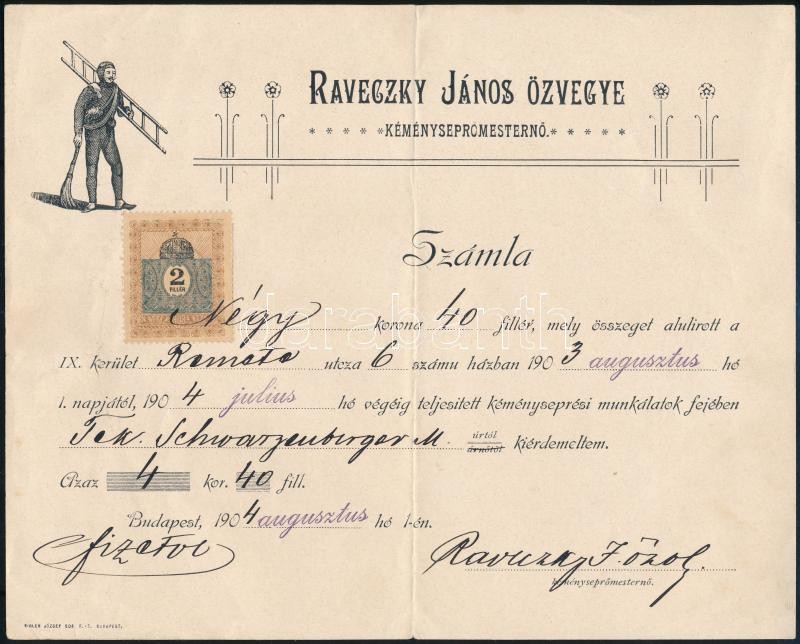 RAVECZKY JÁNOS ÖZVEGYE
KÉMÉNYSEPRŐMESTERNŐ.
Számla
2
FILLÉR
Négy korona 40 fillér, mely összeget alulirott a
IX. kerület Remete utcza 6 számu házban 1903 augusztus hó
1. napjától, 1904 julius hó végéig teljesitett kéményseprési munkálatok fejében
Tek. Schwarzenberger M. úrtól úrnőtől kiérdemeltem.
Azaz 4 kor. 40 fill.
Budapest, 1904 augusztus hó 1-én.
fizetve
Raveczky J. özv.
kéményseprőmesternő.
darabanth